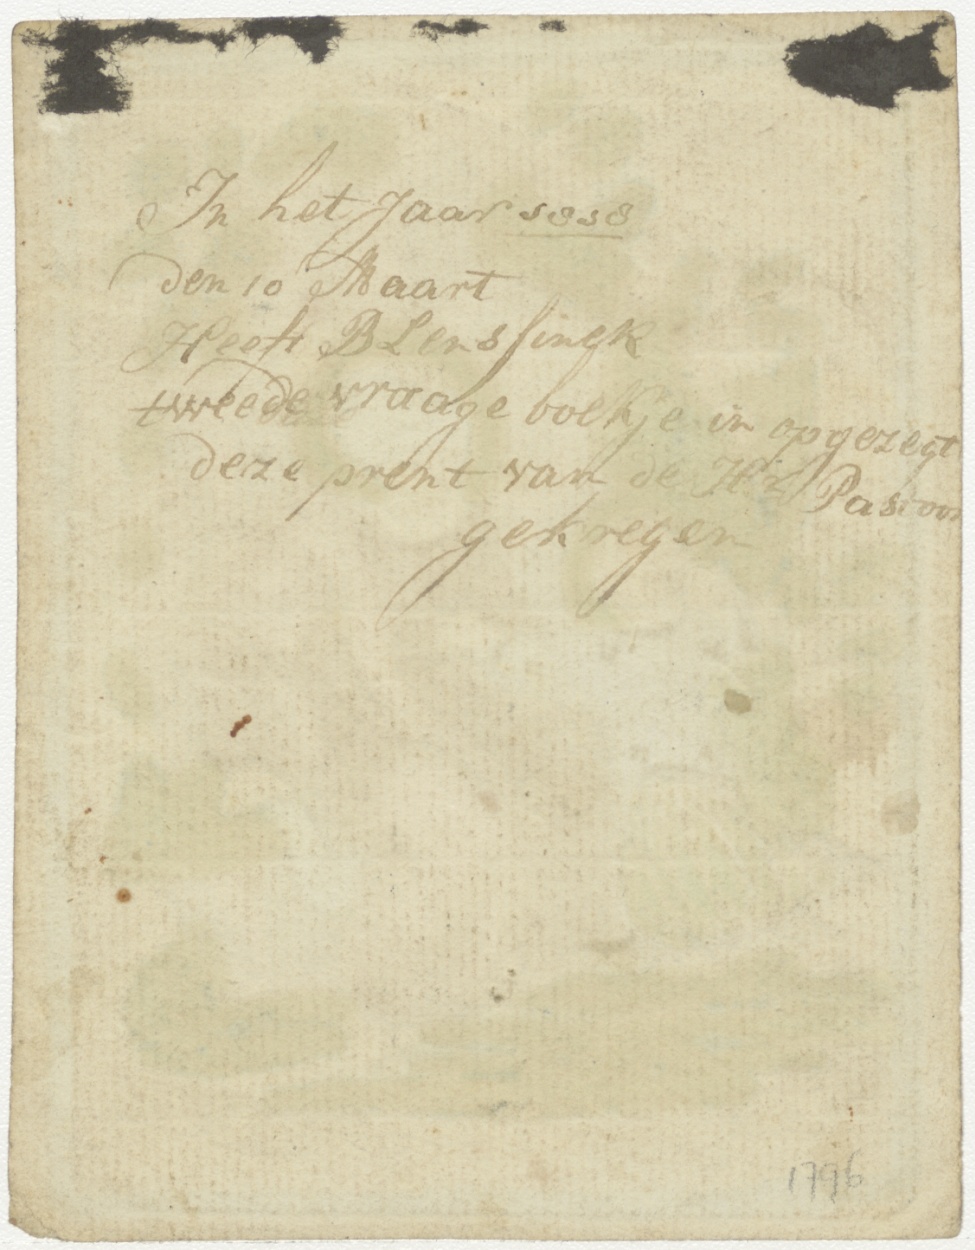 In het Jaar 1818
den 10 Maart
Heeft B Lenssinck
tweede vraage boekje in opgezegt
deze prent van de Hr Pastoor
gekregen
1796